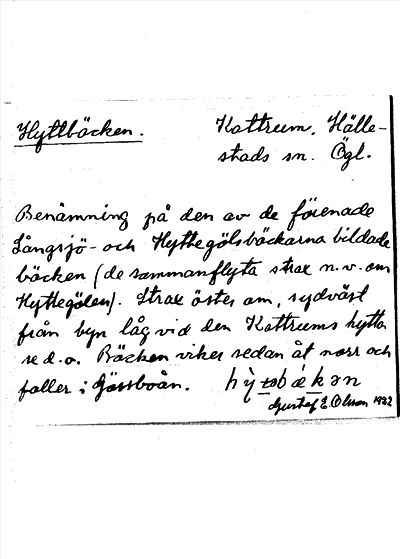 Hyttbäcken.
Kattrum, Hälle-
stads sn. Ögl.
Benämning på den av de förenade
Långsjö- och Hyttegölsbäckarna bildade
bäcken (de sammanflyta strax n.v. om
Hyttegölen). Strax öster om, sydväst
från byn låg vid den Kattrums hytta
se d.o. Bäcken viker sedan åt norr och
faller i
Gustaf E. Olsson 1932